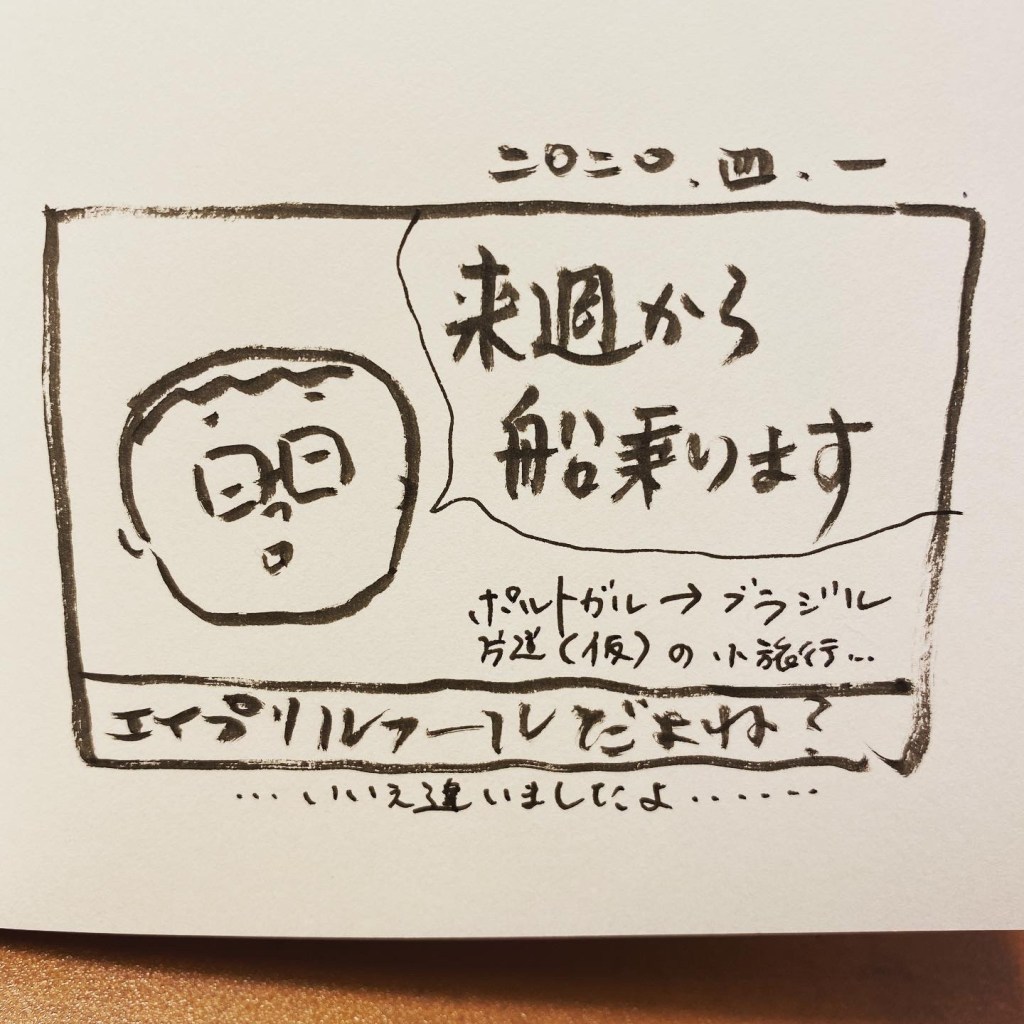 二〇二〇.四.一
来週から
船乗ります
ポルトガル→ブラジル
片道(仮)の小旅行…
エイプリルフールだよね?
…いいえ違いましたよ……